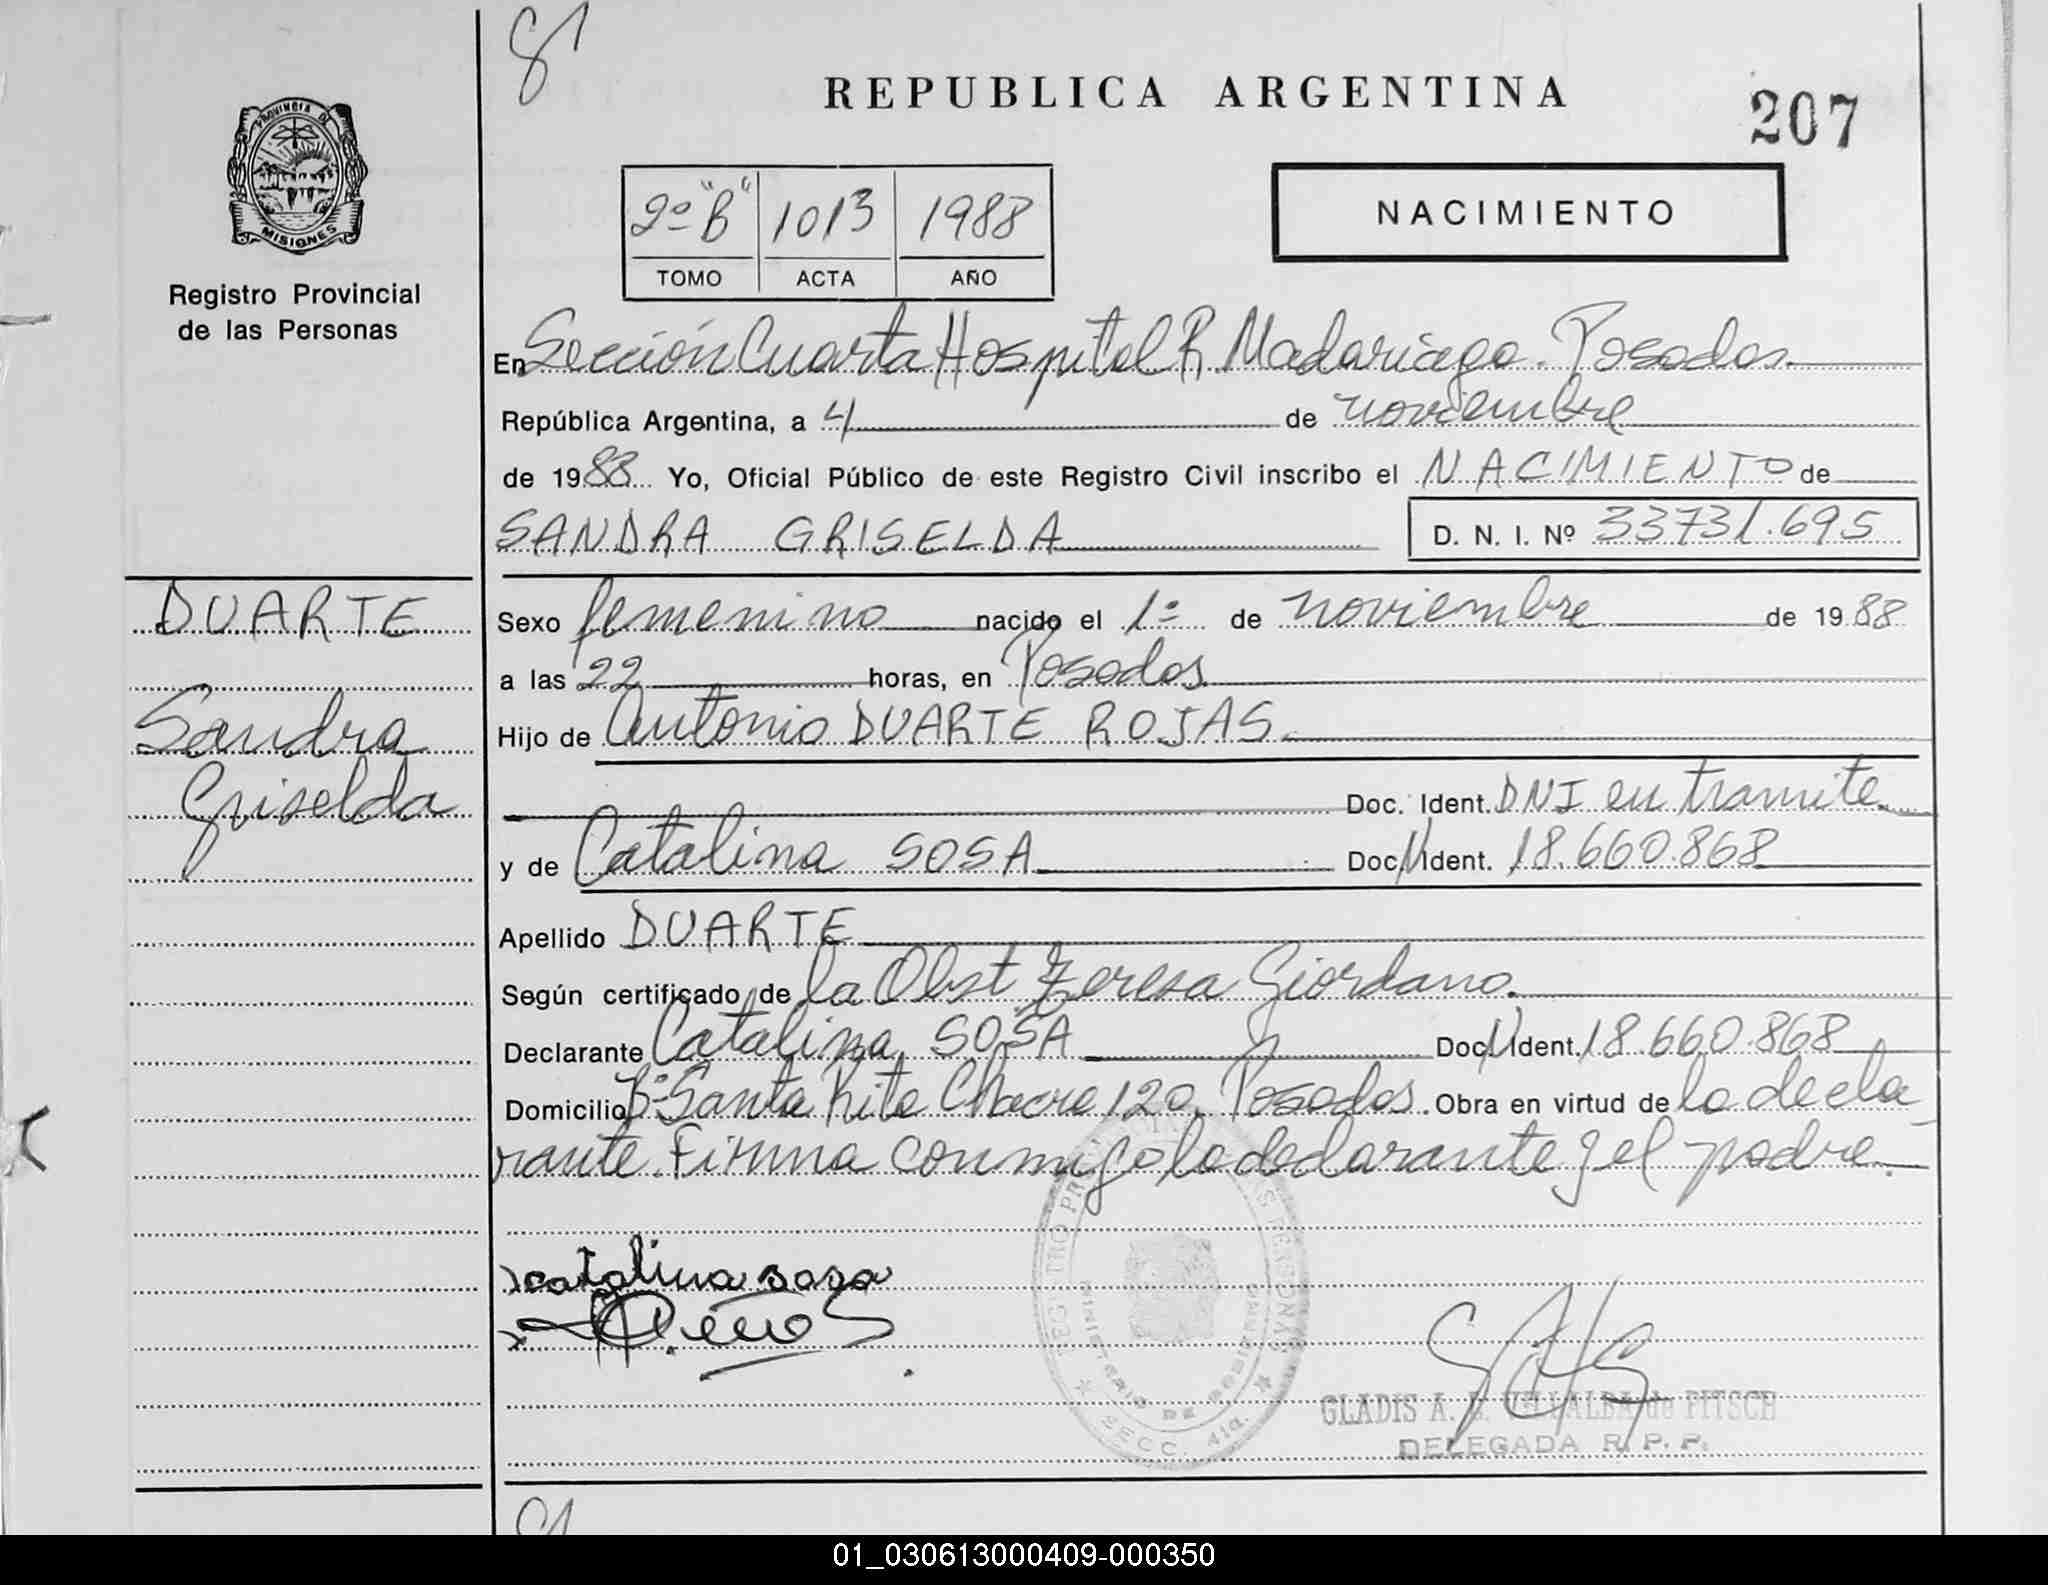 PROVINCIA DE
MISIONES
Registro Provincial
de las Personas
DUARTE
Sandra
Griselda
REPUBLICA ARGENTINA
207
2º "B" 1013 1988
TOMO ACTA AÑO
NACIMIENTO
En Sección Cuarta Hospital R. Madariaga. Posadas.
República Argentina, a 4 de noviembre
de 1988 Yo, Oficial Público de este Registro Civil inscribo el NACIMIENTO de
SANDRA GRISELDA D. N. I. Nº 33731.695
Sexo femenino nacido el 1º de noviembre de 1988
a las 22 horas, en Posadas
Hijo de Antonio DUARTE ROJAS.
Doc. Ident. DNI en tramite
y de Catalina SOSA Doc. Ident. 18.660.868
Apellido DUARTE
Según certificado de la Obst Teresa Giordano.
Declarante Catalina SOSA Doc. Ident. 18.660.868
Domicilio Bº Santa Rita Chacra 120, Posadas. Obra en virtud de la decla
rante. Firma conmigo la declarante y el padre.
catalina sosa
GLADIS A. VILLALBA de PITSCH
DELEGADA R. P. P.
MINISTERIO DE GOBIERNO
SECC. 4ta.
01_030613000409-000350